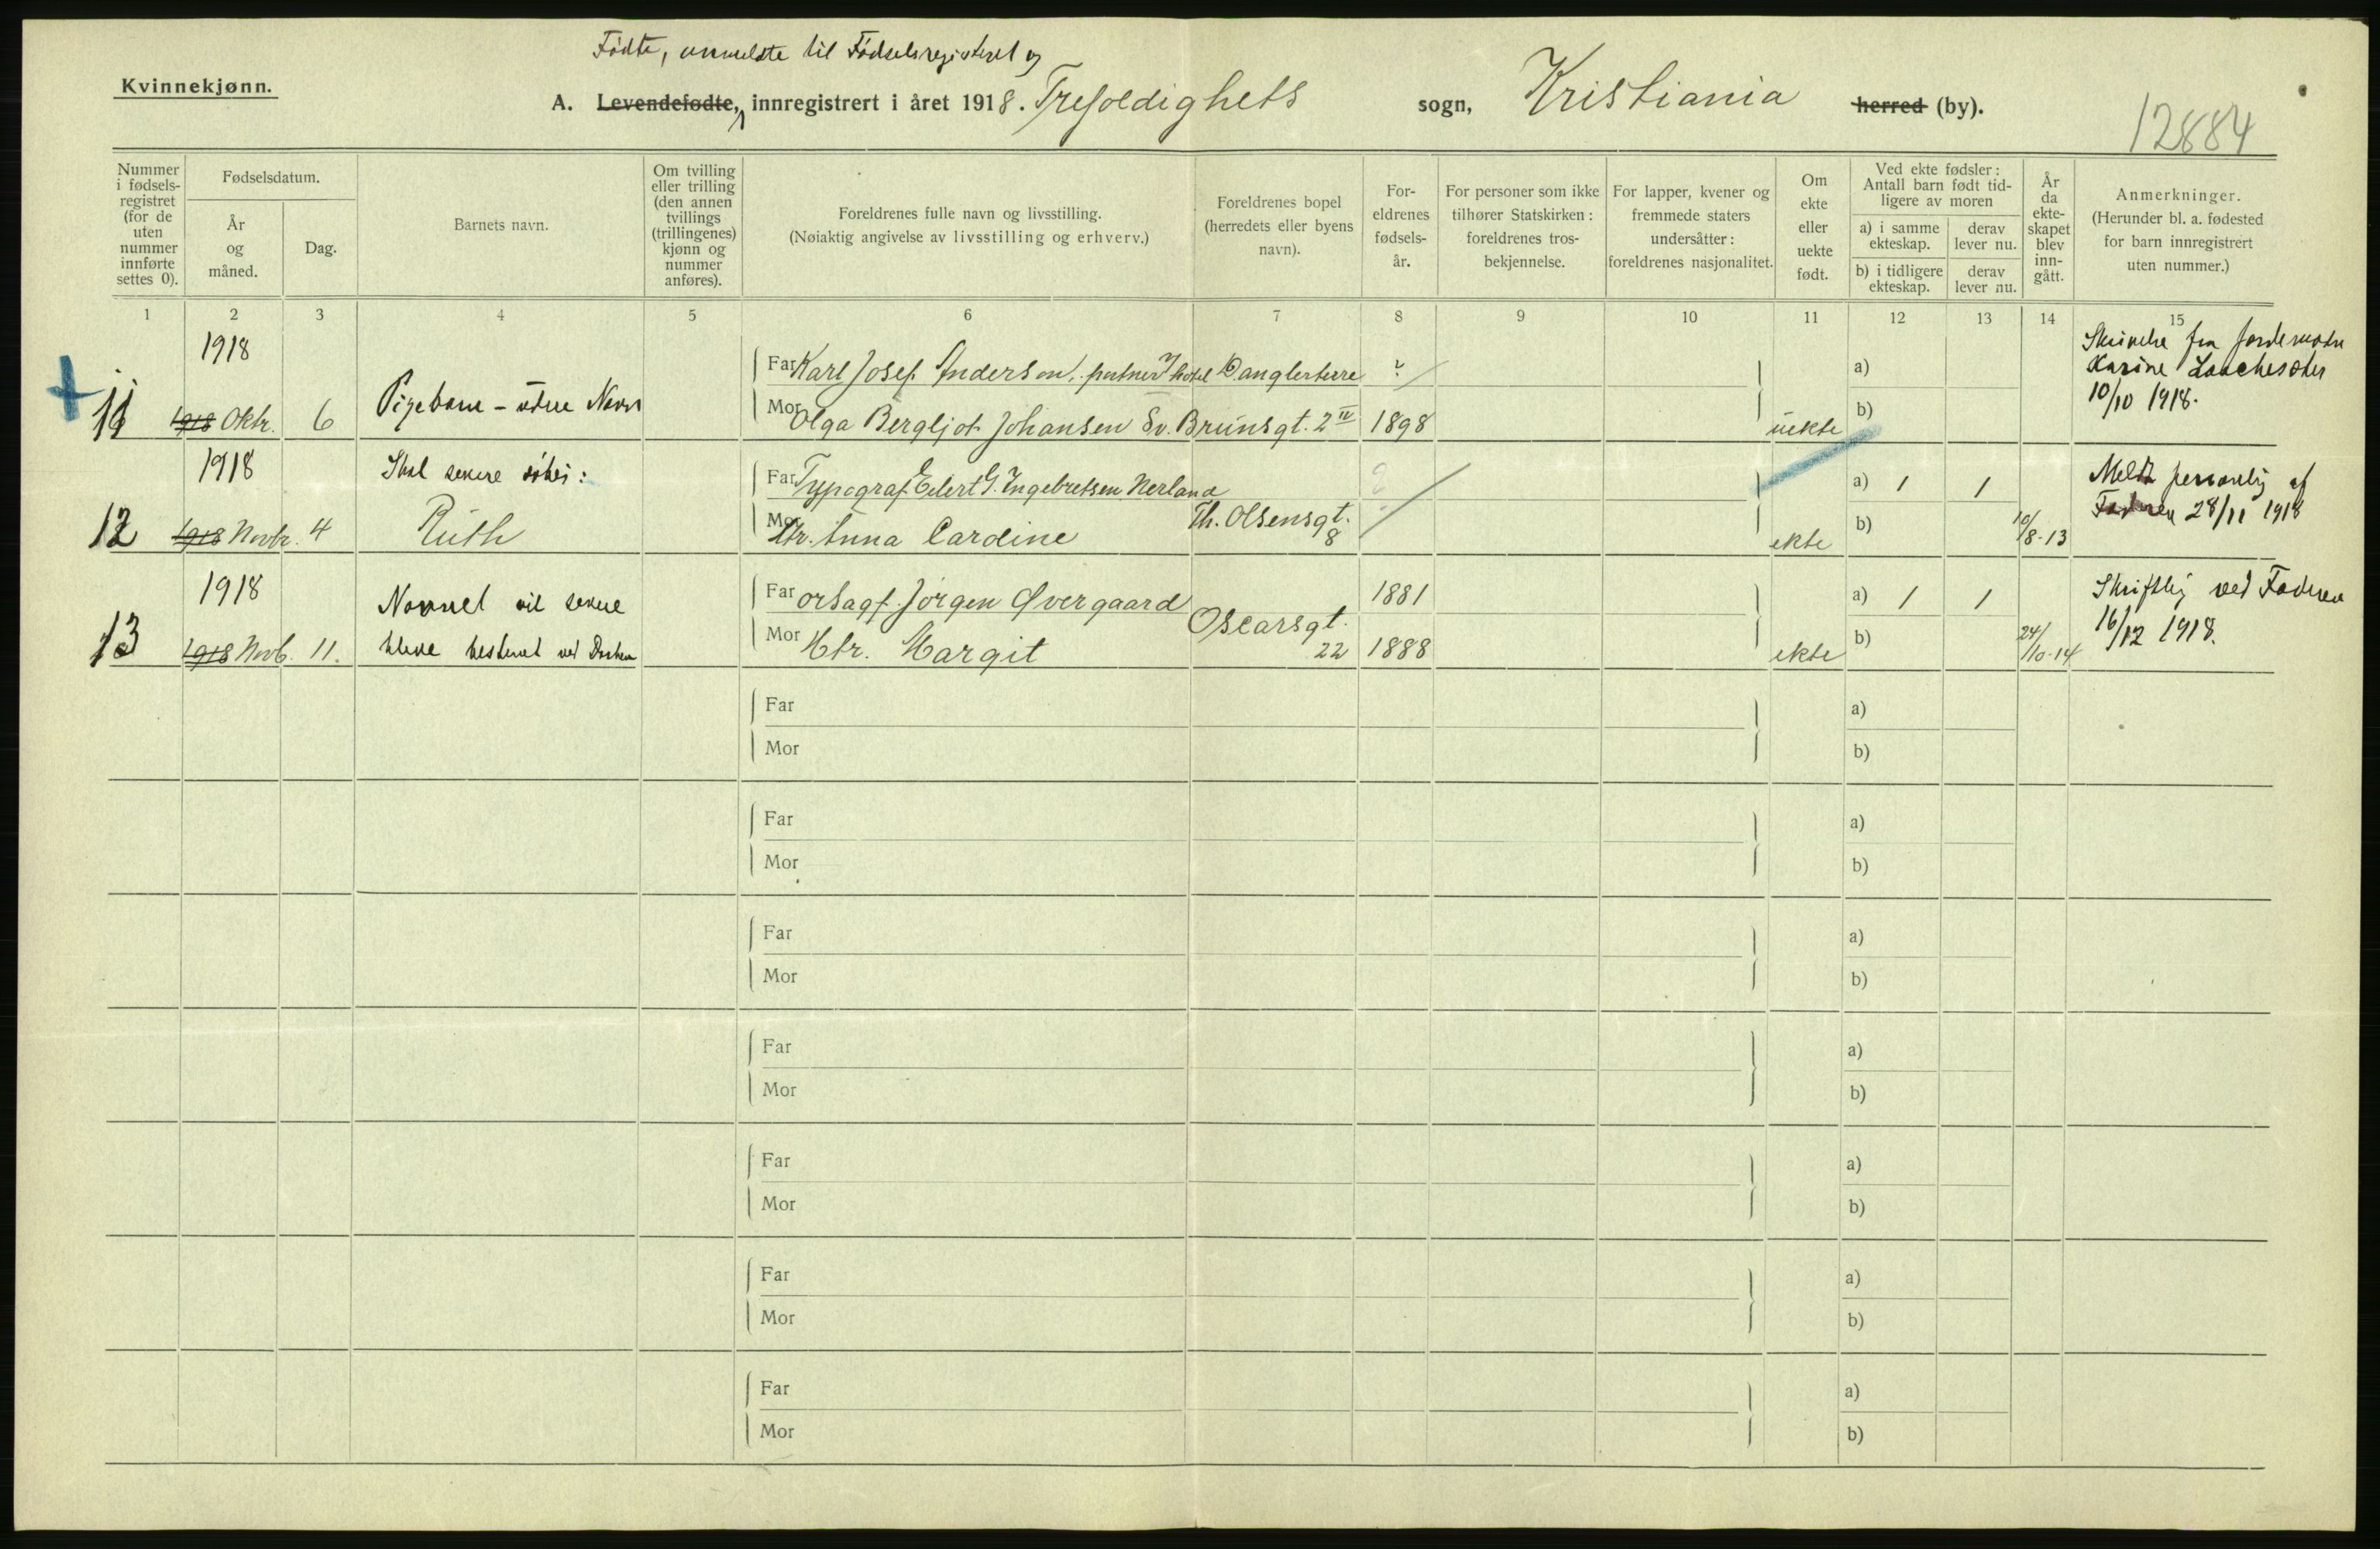 Fødte, anmeldte til Fødselsregisteret og
Kvinnekjønn.
A. Levendefødte, innregistrert i året 1918. Trefoldighets sogn, Kristiania herred (by).
12884
Nummer i fødsels- registret (for de uten nummer innførte settes 0).
Fødselsdatum.
År og måned.
Dag.
Barnets navn.
Om tvilling eller trilling (den annen tvillings (trillingenes) kjønn og nummer anføres).
Foreldrenes fulle navn og livsstilling.
(Nøiaktig angivelse av livsstilling og erhverv.)
Foreldrenes bopel (herredets eller byens navn).
For- eldrenes fødsels- år.
For personer som ikke tilhører Statskirken: foreldrenes tros- bekjennelse.
For lapper, kvener og fremmede staters undersåtter: foreldrenes nasjonalitet.
Om ekte eller uekte født.
Ved ekte fødsler: Antall barn født tid- ligere av moren
a) i samme ekteskap.
derav lever nu.
b) i tidligere ekteskap.
derav lever nu.
År da ekte- skapet blev inn- gått.
Anmerkninger.
(Herunder bl. a. fødested for barn innregistrert uten nummer.)
1 2 3 4 5 6 7 8 9 10 11 12 13 14 15
1918
Far Karl Josef Anderson, portner Hotel Danglerterre ?
a)
Skrivelse fra Jordemoder
Karine
10/10 1918.
11 1918 Oktr. 6 Pigebarn - uden Navn
Mor Olga Bergljot Johansen Sv. Brunsgt. 2 IV 1898 uekte
b)
1918
Skal senere døbes:
Far Typograf Eilert G. Ingebretsen Nerland
a) 1 1
Meldt personlig af
Faderen 28/11 1918
12 1918 Novbr. 4 Ruth
Mor Htr. Anna Caroline Th. Olsensgt. 8 ekte
b) 10/8-13
1918
Navnet vil senere
blive bestemt ved Daaben
Far Orsagf. Jørgen Overgaard 1881
a) 1 1
Skriftlig ved Faderen
16/12 1918.
13 1918 Novb. 11.
Mor Htr. Margit Oscarsgt. 22 1888 ekte
b) 24/10-14
Far a)
Mor b)
Far a)
Mor b)
Far a)
Mor b)
Far a)
Mor b)
Far a)
Mor b)
Far a)
Mor b)
Far a)
Mor b)